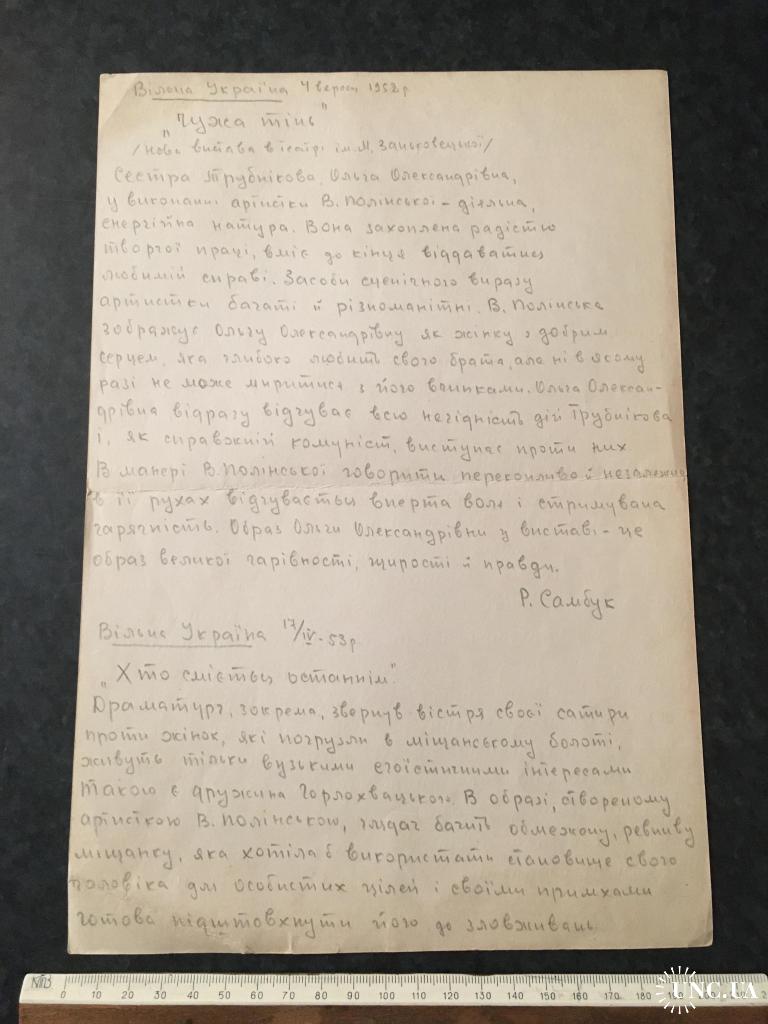 Вільна Україна 4 верес. 1952 р
„Чужа тінь"
/Нова вистава в театрі ім. М. Заньковецької/
Сестра Трубнікова, Ольга Олександрівна,
у виконанні артистки В. Полінської – діяльна,
енергійна натура. Вона захоплена радістю
творчої праці, вміє до кінця віддаватись
любимій справі. Засоби сценічного виразу
артистки багаті й різноманітні. В. Полінська
зображує Ольгу Олександрівну як жінку з добрим
серцем, яка глибоко любить свого брата, але ні в якому
разі не може миритися з його вчинками. Ольга Олексан-
дрівна відразу відчуває всю негідність дій Трубнікова
і, як справжній комуніст, виступає проти них.
В манері В. Полінської говорити переконливо й незалежно,
в її рухах відчувається вперта воля і стримувана
гарячність. Образ Ольги Олександрівни у виставі – це
образ великої чарівності, щирості й правди.
Р. Самбук
Вільна Україна 17/IV-53 р
„Хто сміється останнім".
Драматург, зокрема, звернув вістря своєї сатири
проти жінок, які погрузли в міщанському болоті,
живуть тільки вузькими егоїстичними інтересами
такою є дружина Горлохвацького. В образі, створеному
артисткою В. Полінською, глядач бачить обмежену, ревниву
міщанку, яка хотіла б використати становище свого
чоловіка для особистих цілей і своїми примхами
готова підштовхнути його до зловживань.
0 10 20 30 40 50 60 70 80 90 100 110 120 130 140 150 160 170 180 190 200
UNC.UA